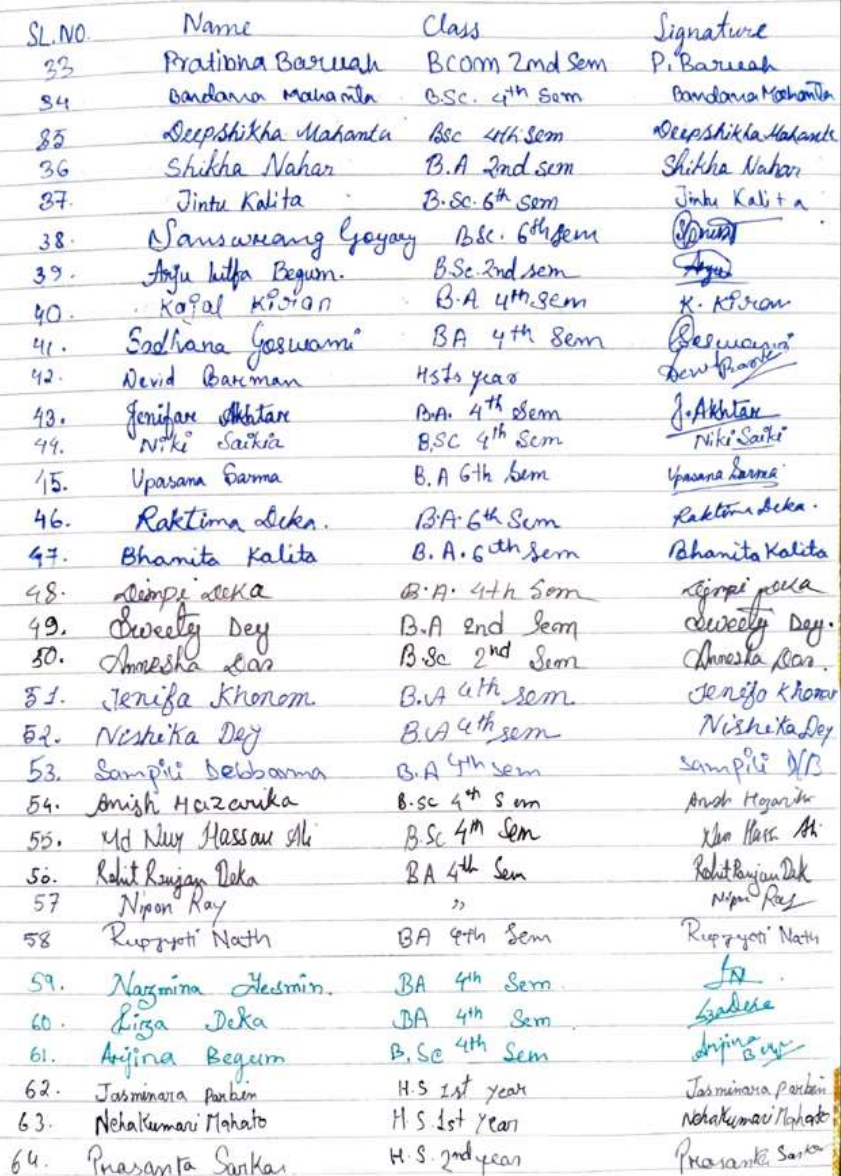 SL.NO. Name Class Signature
33 Pratibha Baruah BCom 2nd Sem P. Baruah
34 Bandana Mahanta B.Sc. 4th Sem Bandana Mahanta
35 Deepshikha Mahanta Bsc 4th Sem Deepshikha Mahanta
36 Shikha Nahar B.A 2nd sem Shikha Nahar
37. Jintu Kalita B.Sc. 6th Sem Jintu Kalita
38. Goyary BSc. 6th Sem
39. Anju Begum. B.Sc. 2nd sem Anju
40. Kajal Kiran B.A 4th sem K. Kiran
41. Sadhana Goswami BA 4th Sem Goswami
42. Devid Barman year
43. Jenifar Akhtar B.A. 4th Sem J. Akhtar
44. Niki Saikia B.SC 4th Sem Niki Saiki
45. Upasana Sarma B.A 6th Sem Upasana Sarma
46. Raktima Deka. B.A. 6th Sem Raktima Deka.
47. Bhanita Kalita B.A. 6th Sem Bhanita Kalita
48. Dimpi Deka B.A. 4th Sem Dimpi Deka
49. Sweety Dey B.A 2nd Sem Sweety Dey.
50. Annesha Das B.Sc 2nd Sem Annesha Das.
51. Jenifa Khonom. B.A 4th sem. Jenifa
52. Nishika Dey B.A 4th sem Nishika Dey
53. Sampili Debbarma B.A 4th sem Sampili D/B
54. Anish Hazarika B.sc 4th Sem Anish
55. Md Nur Hassan Ali B.Sc 4th Sem Ali
56. Rohit Ranjan Deka BA 4th Sem Rohit Ranjan Dek
57 Nipon Ray " Nipon Ray
58 Rupjyoti Nath BA 4th Sem Rupjyoti Nath
59. Nazmina Yesmin. BA 4th Sem
60. Liza Deka BA 4th Sem
61. Arjina Begum B.Sc 4th Sem Arjina
62. Jasminara Parbin H.S 1st year Jasminara Parbin
63. Neha Kumari Mahato H.S 1st Year Neha Kumari Mahato
64. Prasanta Sarkar H.S. 2nd year Prasanta Sarkar